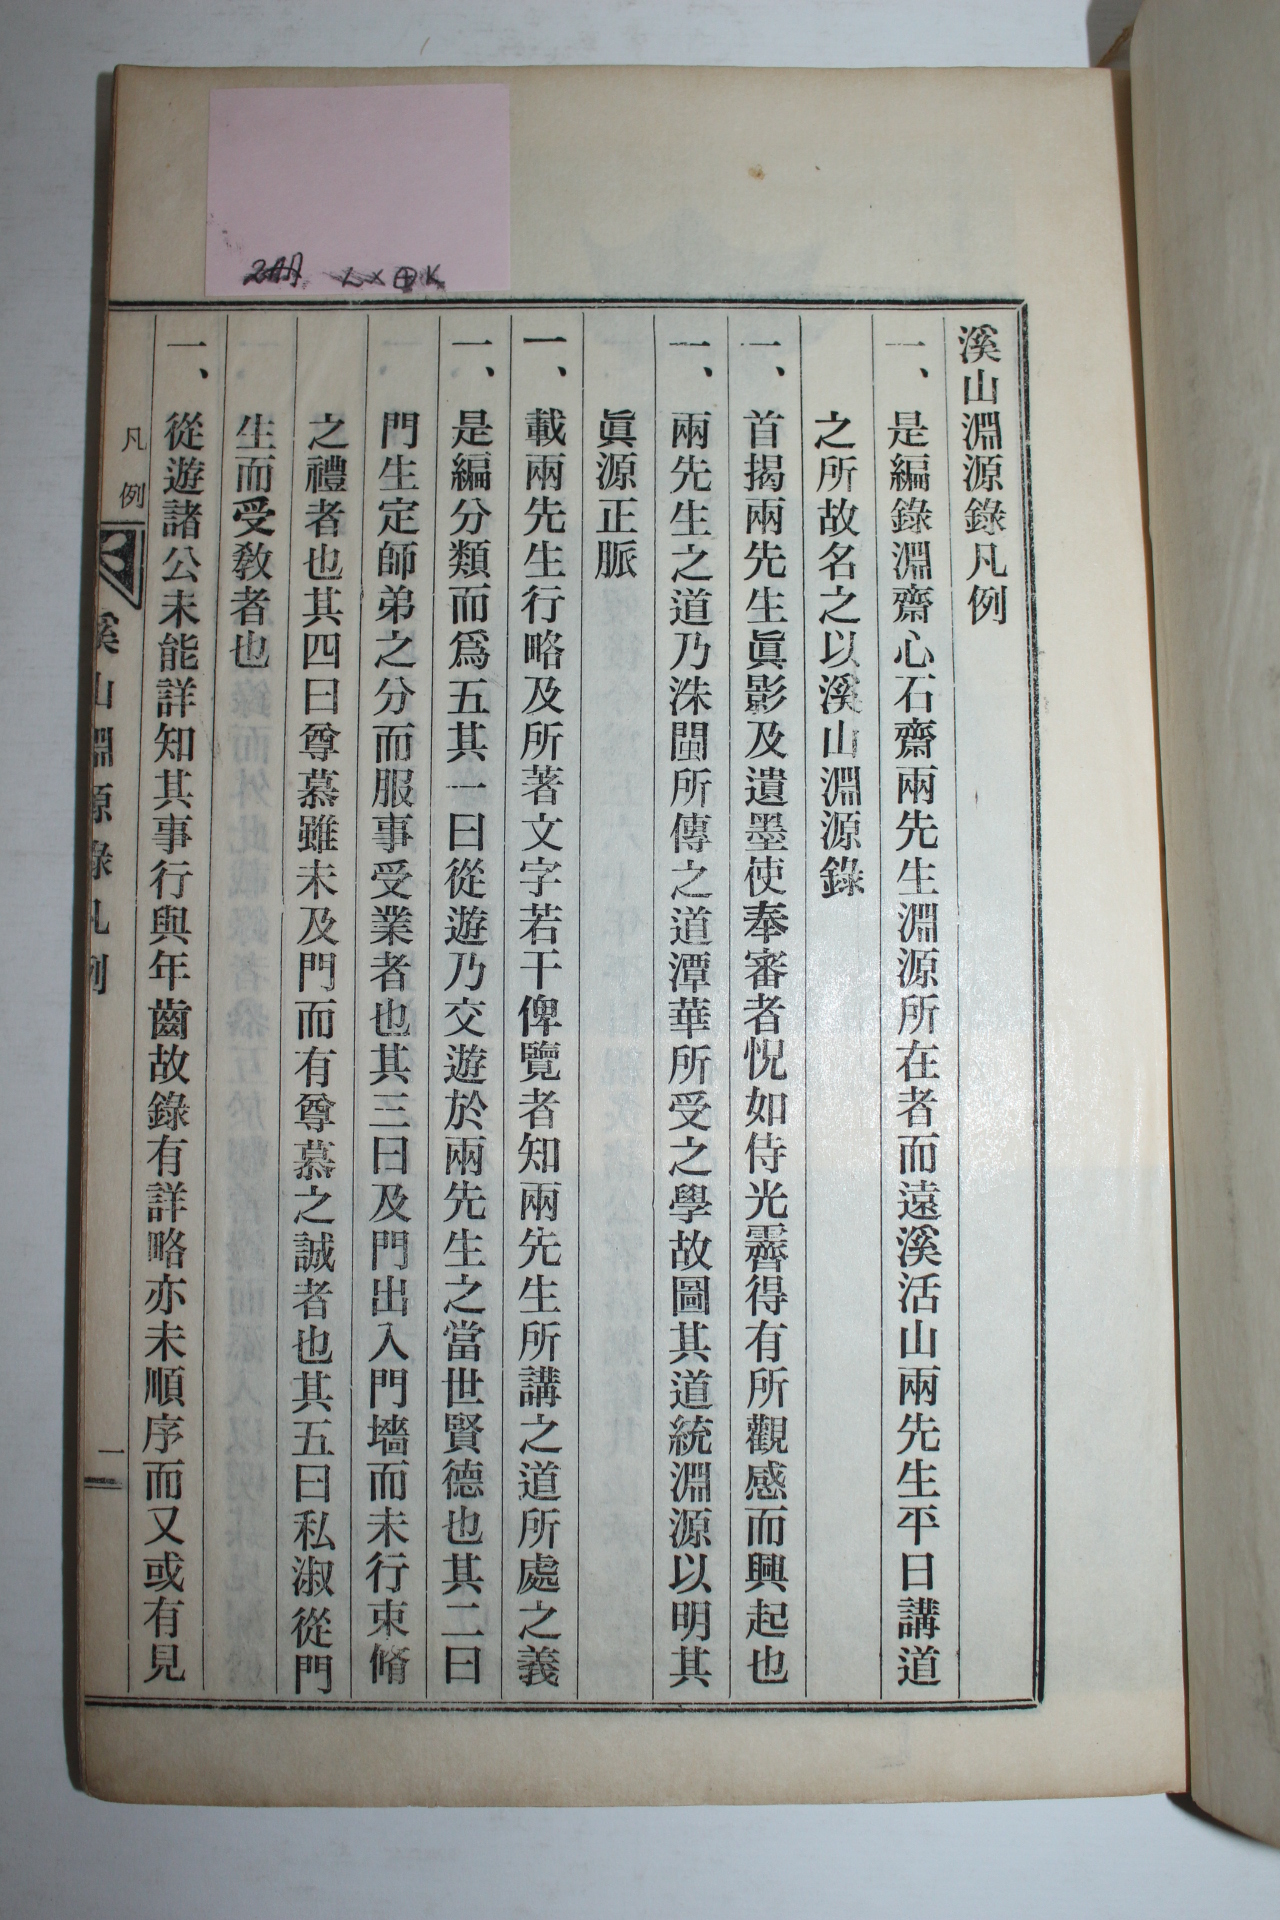 溪山淵源錄凡例
一、是編錄淵齋心石齋兩先生淵源所在者而遠溪活山兩先生平日講道
之所故名之以溪山淵源錄
一、首揭兩先生眞影及遺墨使奉審者怳如侍光霽得有所觀感而興起也
一、兩先生之道乃洙閩所傳之道潭華所受之學故圖其道統淵源以明其
眞源正脈
一、載兩先生行略及所著文字若干俾覽者知兩先生所講之道所處之義
一、是編分類而爲五其一曰從遊乃交遊於兩先生之當世賢德也其二曰
門生定師弟之分而服事受業者也其三曰及門出入門墻而未行束脩
之禮者也其四曰尊慕雖未及門而有尊慕之誠者也其五曰私淑從門
生而受教者也
一、從遊諸公未能詳知其事行與年齒故錄有詳略亦未順序而又或有見
凡例
溪山淵源錄凡例
一